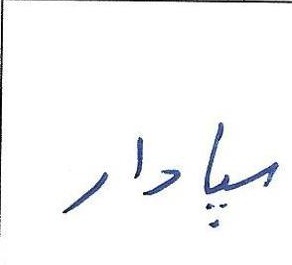 سپادار